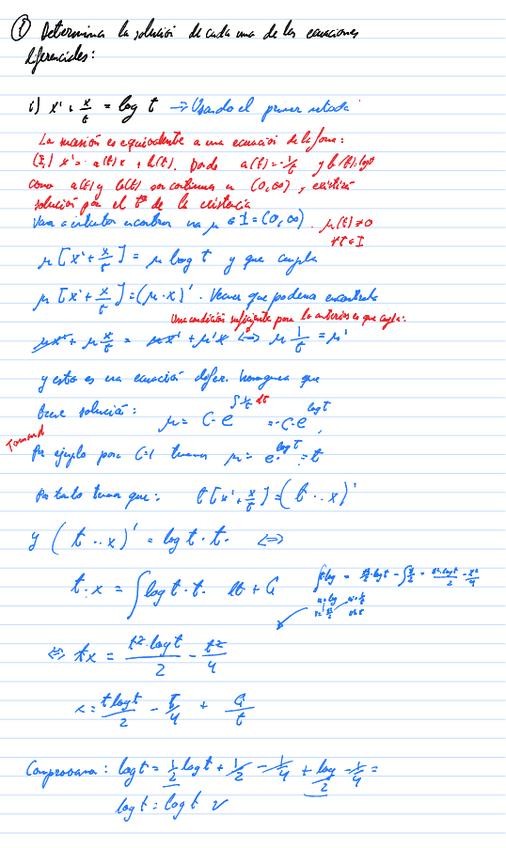 ① Determina la solución de cada una de las ecuaciones
diferenciales:
c) x' + x/t = log t → Usando el primer método
La ecuación es equivalente a una ecuación de la forma:
x' = a(t)x + b(t). Donde a(t) = -1/t y b(t) = log t
como a(t) y b(t) son continuas en (0,∞), existirá
solución por el tª de la existencia
Vamos a intentar encontrar una μ ∈ I = (0,∞). μ(t) ≠ 0
∀t ∈ I
μ[x' + x/t] = μ log t y que cumpla
μ[x' + x/t] = (μ·x)'. Vemos que podemos encontrarla
Una condición suficiente para lo anterior es que cumpla:
μx' + μ x/t = μx' + μ'x ⟺ μ 1/t = μ'
y esto es una ecuación difer. homogenea que
tiene solución: μ = C·e^{∫1/t dt} = C·e^{log t}
Tomando
Por ejemplo para C=1 tenemos μ = e^{log t} = t
Por tanto tenemos que: t[x' + x/t] = (t··x)'
y (t··x)' = log t · t. ⟺
t·x = ∫ log t · t. dt + C
⟺ tx = t² log t / 2 - t²/4
x = t log t / 2 - t/4 + C/t
Comprovamos: log t = 1/2 log t + 1/2 - 1/4 + log t/2 - 1/4 =
log t = log t ✓